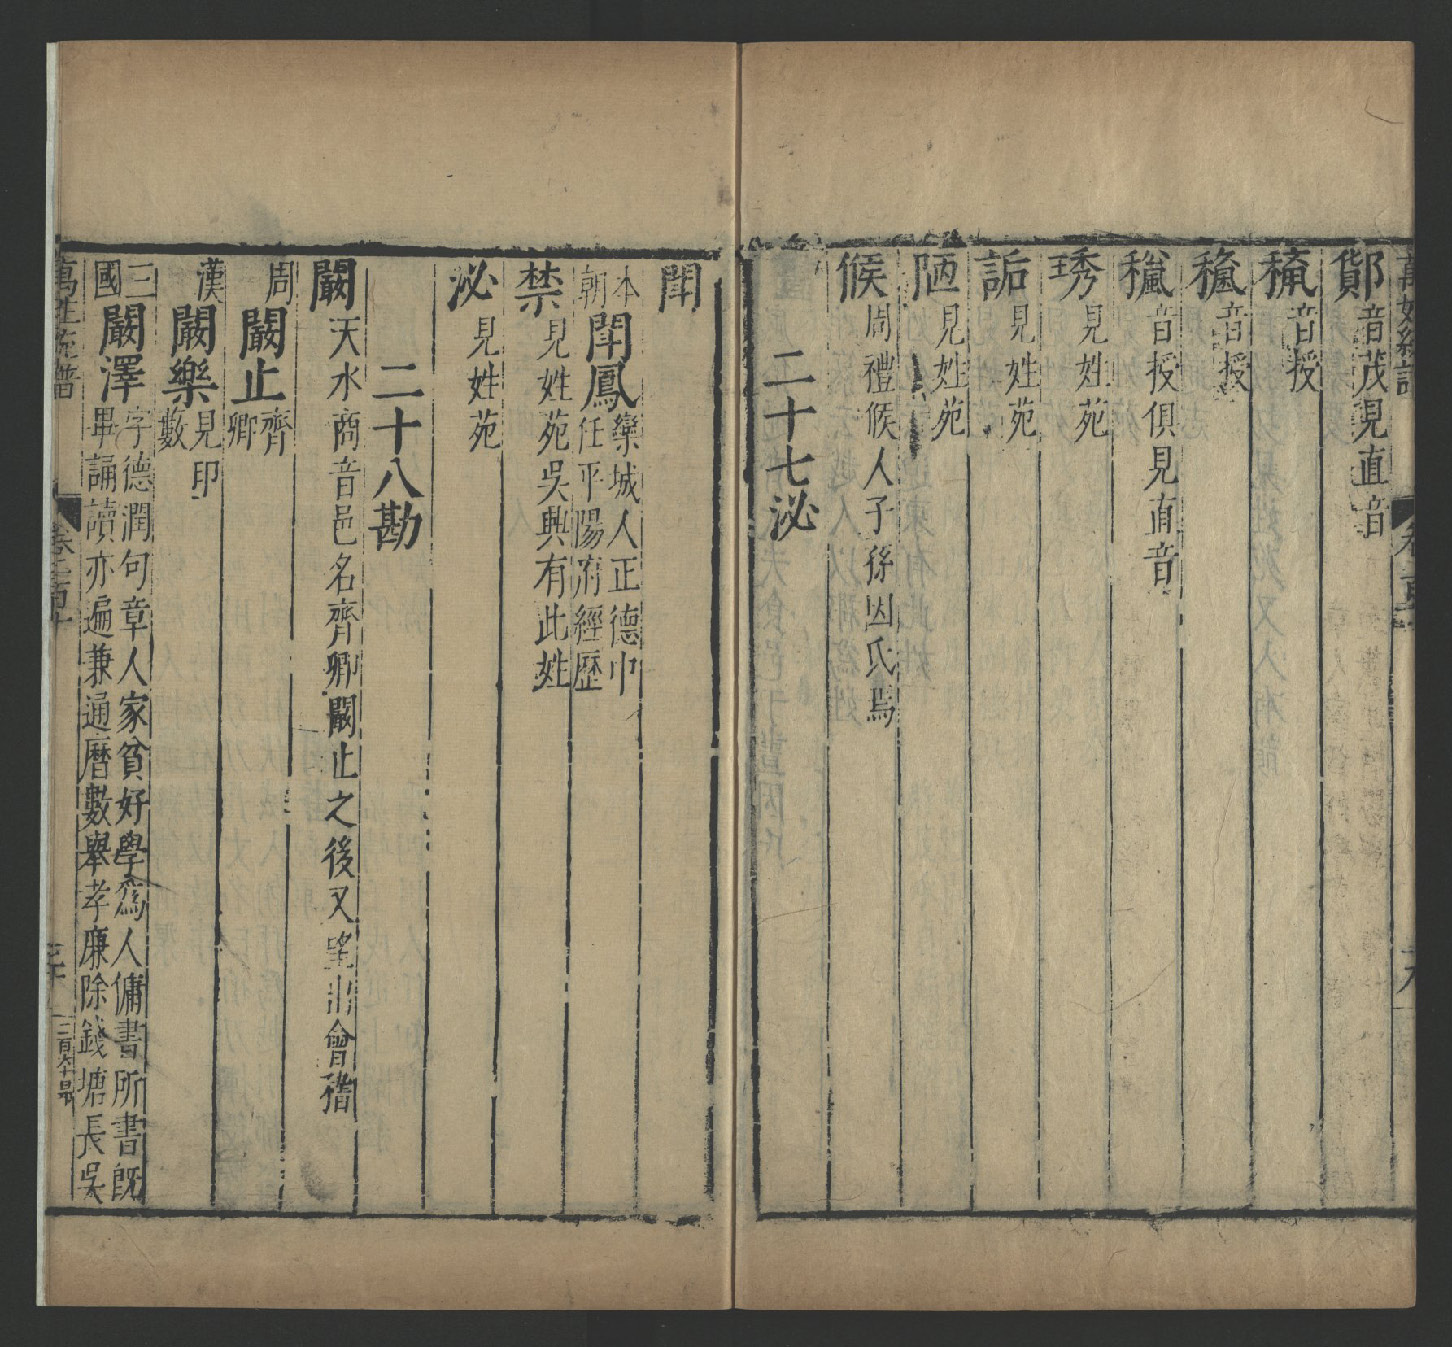 鄮音茂見直音
音授
音授
音授俱見直音
琇見姓苑
詬見姓苑
陋見姓苑
候周禮候人子孫因氏焉
二十七泌
閏
本朝閏鳳欒城人正德中任平陽府經歷
禁見姓苑吳興有此姓
泌見姓苑
二十八勘
闞天水商音邑名齊卿闞止之後又望出會稽
周闞止齊卿
漢闞樂見印數
三國闞澤字德潤句章人家貧好學爲人傭書所書既畢誦讀亦遍兼通曆數舉孝廉除錢塘長吳
萬姓統譜